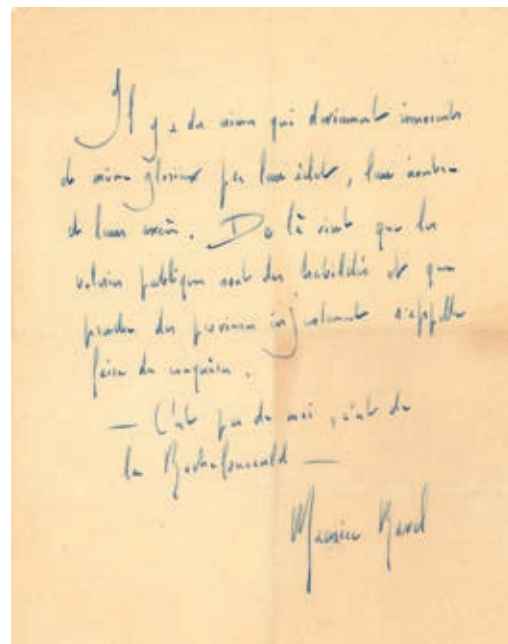 Il y a des crimes qui deviennent innocents
et même glorieux par leur éclat, leur nombre
et leur excès. De là vient que les
voleries publiques sont des habiletés et que
prendre des provinces injustement s'appelle
faire des conquêtes.
— C'est pas de moi, c'est de
La Rochefoucauld —
Maurice Ravel